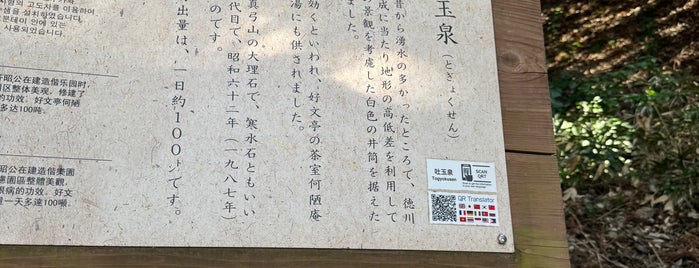 玉泉（とぎょくせん）
昔から湧水の多かったところで、徳川
成に当たり地形の高低差を利用して
景観を考慮した白色の井筒を据えた
ました。
効くといわれ、好文亭の茶室何陋庵
湯にも供されました。
真弓山の大理石で、寒水石ともいい
代目で、昭和六十二年（一九八七年）
のです。
出量は、一日約１００トンです。
사용되었습니다.
昭公在建造偕乐园时,
园区整体美观，修建了
的功效。好文亭何陋
多达100吨.
昭公在建造偕樂園
慮園區整體美觀，
眼病的功效。好文
一天多達100噸.
吐玉泉
Togyokusen
SCAN
QR Translator